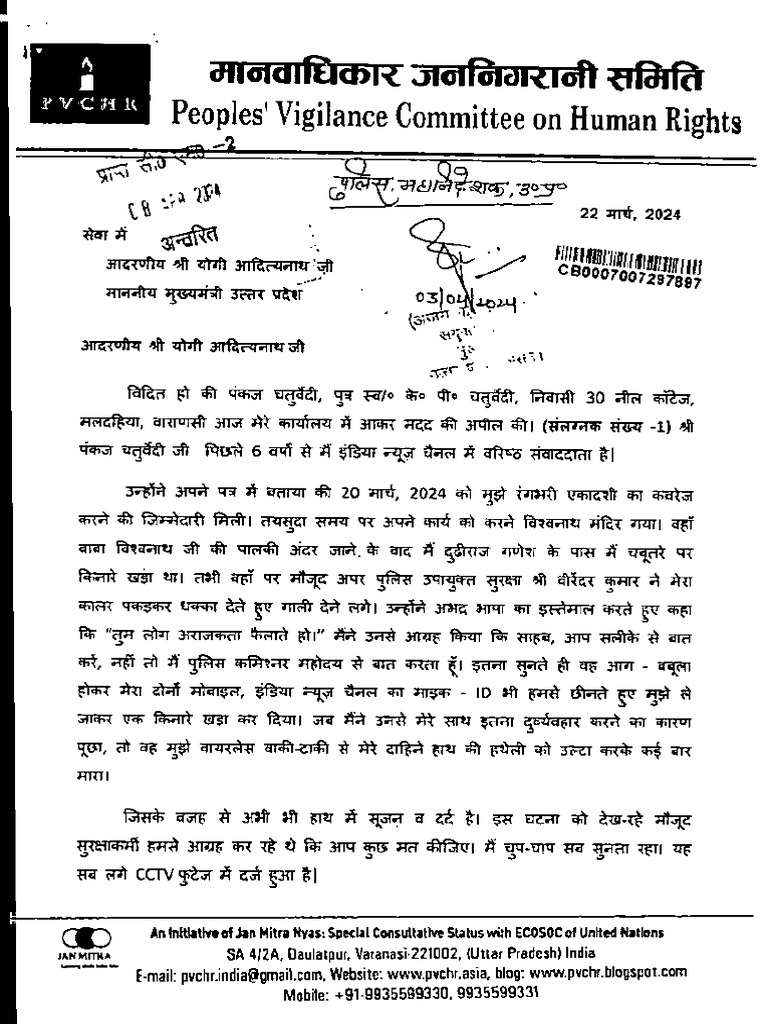 PVCHR
मानवाधिकार जननिगरानी समिति
Peoples' Vigilance Committee on Human Rights
पुलिस महानिदेशक, उ०प्र०
22 मार्च, 2024
सेवा में
अन्तरित
आदरणीय श्री योगी आदित्यनाथ जी
CB0007007297897
माननीय मुख्यमंत्री उत्तर प्रदेश
03/04/2024
आदरणीय श्री योगी आदित्यनाथ जी
विदित हो की पंकज चतुर्वेदी, पुत्र स्व/० के० पी० चतुर्वेदी, निवासी 30 नील कॉटेज,
मलदहिया, वाराणसी आज मेरे कार्यालय में आकर मदद की अपील की। (संलग्नक संख्य -1) श्री
पंकज चतुर्वेदी जी पिछले 6 वर्षो से मैं इंडिया न्यूज़ चैनल में वरिष्ठ संवाददाता है|
उन्होंने अपने पत्र में बताया की 20 मार्च, 2024 को मुझे रंगभरी एकादशी का कवरेज
करने की जिम्मेदारी मिली। तयसुदा समय पर अपने कार्य को करने विश्वनाथ मंदिर गया। वहाँ
बाबा विश्वनाथ जी की पालकी अंदर जाने के बाद मैं दुढीराज गणेश के पास मैं चबूतरे पर
किनारे खड़ा था। तभी वहाँ पर मौजूद अपर पुलिस उपायुक्त सुरक्षा श्री वीरेंदर कुमार ने मेरा
कालर पकड़कर धक्का देते हुए गाली देने लगे। उन्होंने अभद भाषा का इस्तेमाल करते हुए कहा
कि "तुम लोग अराजकता फैलाते हो।" मैंने उनसे आग्रह किया कि साहब, आप सलीके से बात
करें, नहीं तो मैं पुलिस कमिश्नर महोदय से बात करता हूँ। इतना सुनते ही वह आग - बबूला
होकर मेरा दोनों मोबाइल, इंडिया न्यूज़ चैनल का माइक - ID भी हमसे छीनते हुए मुझे ले
जाकर एक किनारे खड़ा कर दिया। जब मैंने उनसे मेरे साथ इतना दुर्व्यवहार करने का कारण
पूछा, तो वह मुझे वायरलेस वाकी-टाकी से मेरे दाहिने हाथ की हथेली को उल्टा करके कई बार
मारा।
जिसके वजह से अभी भी हाथ में सूजन व दर्द है। इस घटना को देख-रहे मौजूद
सुरक्षाकर्मी हमसे आग्रह कर रहे थे कि आप कुछ मत कीजिए। मैं चुप-चाप सब सुनता रहा। यह
सब लगे CCTV फुटेज में दर्ज हुआ है|
An Initiative of Jan Mitra Nyas: Special Consultative Status with ECOSOC of United Nations
JAN MITRA
SA 4/2A, Daulatpur, Varanasi-221002, (Uttar Pradesh) India
E-mail: pvchr.india@gmail.com, Website: www.pvchr.asia, blog: www.pvchr.blogspot.com
Mobile: +91-9935599330, 9935599331